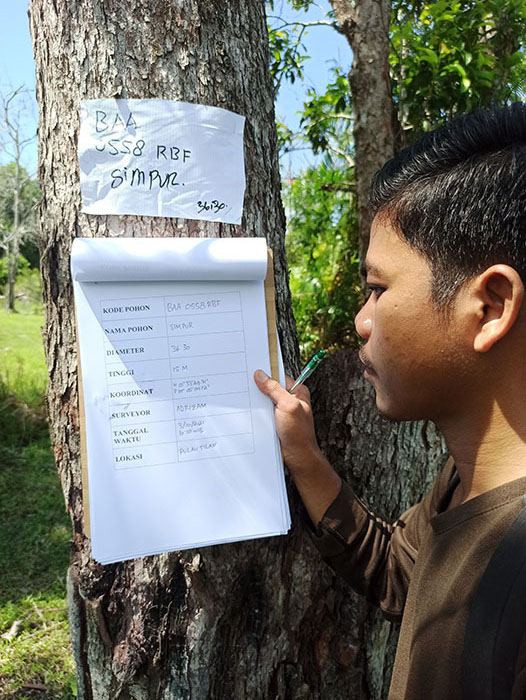 BAA
0558 RBF
SIMPUR.
36.30.
KODE POHON BAA 0558 RBF
NAMA POHON SIMPUR
DIAMETER 36.30
TINGGI 15 M
KOORDINAT
SURVEYOR
TANGGAL
WAKTU
LOKASI PULAU TILAN